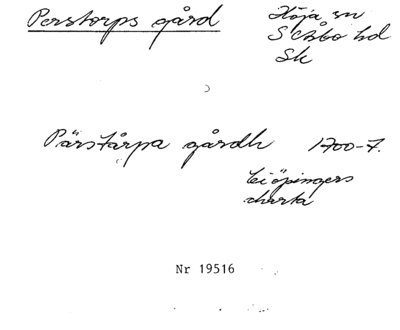 Perstorps gård
Höja sn
S Åsbo hd
Sk
Pärstårpa gårdh 1700-t.
Ciöpingers
charta
Nr 19516